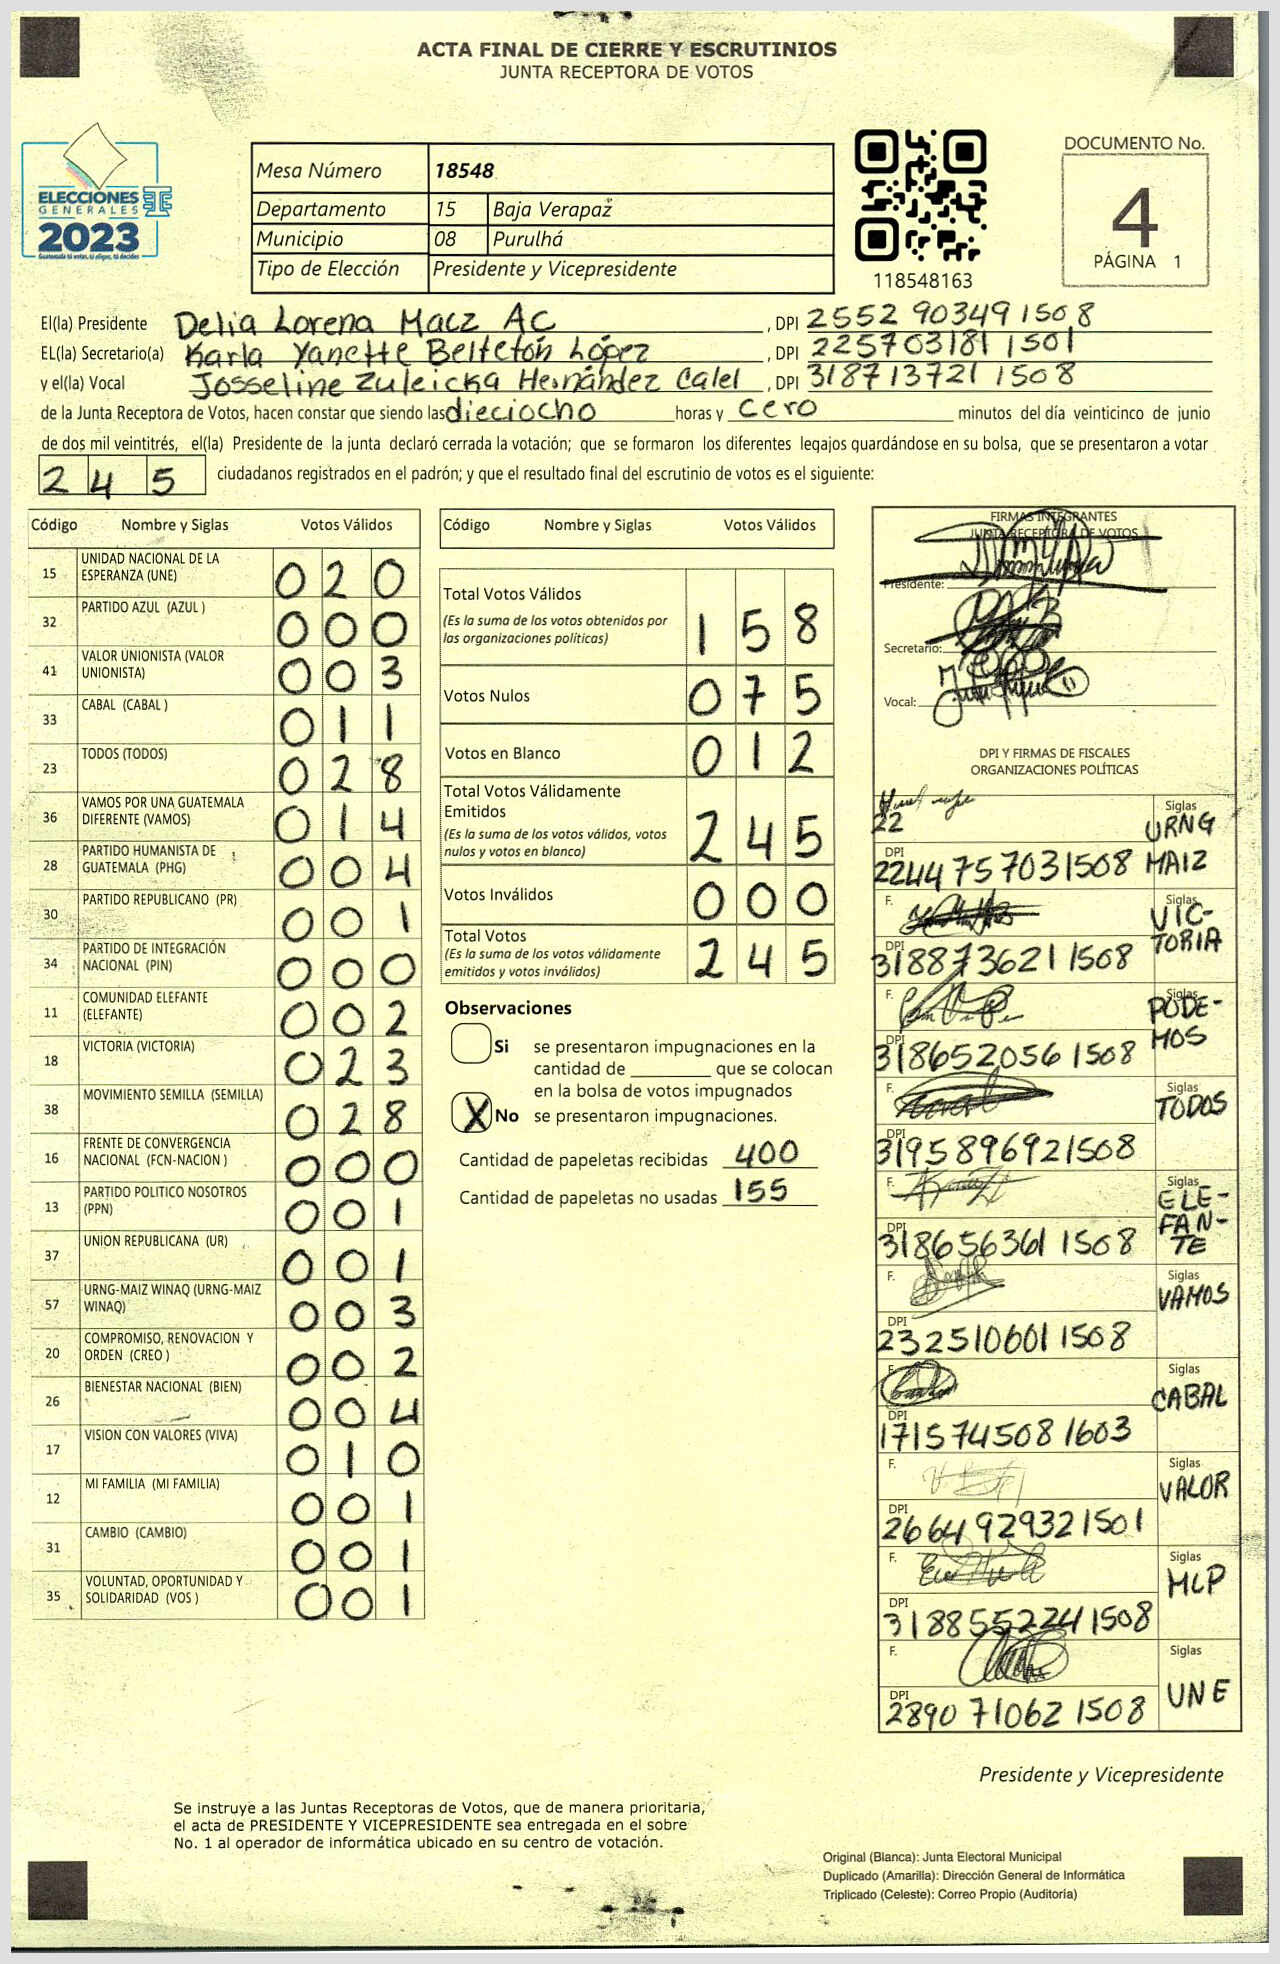 ACTA FINAL DE CIERRE Y ESCRUTINIOS
JUNTA RECEPTORA DE VOTOS
ELECCIONES
GENERALES
2023
Guatemala tú votas, tú eliges, tú decides
Mesa Número 18548
Departamento 15 Baja Verapaz
Municipio 08 Purulhá
Tipo de Elección Presidente y Vicepresidente
118548163
DOCUMENTO No.
4
PÁGINA 1
El(la) Presidente Delia Lorena Macz AC , DPI 2552 90349 1508
EL(la) Secretario(a) Karla Yanette Belteton López , DPI 225703181 1501
y el(la) Vocal Josseline Zuleicka Hernández Calel , DPI 318713721 1508
de la Junta Receptora de Votos, hacen constar que siendo las dieciocho horas y cero minutos del día veinticinco de junio
de dos mil veintitrés, el(la) Presidente de la junta declaró cerrada la votación; que se formaron los diferentes legajos guardándose en su bolsa, que se presentaron a votar
2 4 5 ciudadanos registrados en el padrón; y que el resultado final del escrutinio de votos es el siguiente:
Código Nombre y Siglas Votos Válidos
15 UNIDAD NACIONAL DE LA
ESPERANZA (UNE) 0 2 0
32 PARTIDO AZUL (AZUL ) 0 0 0
41 VALOR UNIONISTA (VALOR
UNIONISTA) 0 0 3
33 CABAL (CABAL ) 0 1 1
23 TODOS (TODOS) 0 2 8
36 VAMOS POR UNA GUATEMALA
DIFERENTE (VAMOS) 0 1 4
28 PARTIDO HUMANISTA DE
GUATEMALA (PHG) 0 0 4
30 PARTIDO REPUBLICANO (PR) 0 0 1
34 PARTIDO DE INTEGRACIÓN
NACIONAL (PIN) 0 0 0
11 COMUNIDAD ELEFANTE
(ELEFANTE) 0 0 2
18 VICTORIA (VICTORIA) 0 2 3
38 MOVIMIENTO SEMILLA (SEMILLA) 0 2 8
16 FRENTE DE CONVERGENCIA
NACIONAL (FCN-NACION ) 0 0 0
13 PARTIDO POLITICO NOSOTROS
(PPN) 0 0 1
37 UNION REPUBLICANA (UR) 0 0 1
57 URNG-MAIZ WINAQ (URNG-MAIZ
WINAQ) 0 0 3
20 COMPROMISO, RENOVACION Y
ORDEN (CREO ) 0 0 2
26 BIENESTAR NACIONAL (BIEN) 0 0 4
17 VISION CON VALORES (VIVA) 0 1 0
12 MI FAMILIA (MI FAMILIA) 0 0 1
31 CAMBIO (CAMBIO) 0 0 1
35 VOLUNTAD, OPORTUNIDAD Y
SOLIDARIDAD (VOS ) 0 0 1
Código Nombre y Siglas Votos Válidos
Total Votos Válidos
(Es la suma de los votos obtenidos por
las organizaciones políticas) 1 5 8
Votos Nulos 0 7 5
Votos en Blanco 0 1 2
Total Votos Válidamente
Emitidos
(Es la suma de los votos válidos, votos
nulos y votos en blanco) 2 4 5
Votos Inválidos 0 0 0
Total Votos
(Es la suma de los votos válidamente
emitidos y votos inválidos) 2 4 5
Observaciones
Si se presentaron impugnaciones en la
cantidad de ________ que se colocan
en la bolsa de votos impugnados
X No se presentaron impugnaciones.
Cantidad de papeletas recibidas 400
Cantidad de papeletas no usadas 155
FIRMAS INTEGRANTES
JUNTA RECEPTORA DE VOTOS
Presidente:
Secretario:
Vocal:
DPI Y FIRMAS DE FISCALES
ORGANIZACIONES POLÍTICAS
22
Siglas
URNG
MAIZ
DPI
2244757031508
F.
Siglas
VIC-
TORIA
DPI
3188736211508
F.
Siglas
PODE-
MOS
DPI
318652056 1508
F.
Siglas
TODOS
DPI
3195896921508
F.
Siglas
ELE-
FAN-
TE
DPI
318656361 1508
F.
Siglas
VAMOS
DPI
232510601 1508
F.
Siglas
CABAL
DPI
171574508 1603
F.
Siglas
VALOR
DPI
2664929321501
F.
Siglas
MLP
DPI
3188552241508
F.
Siglas
UNE
DPI
2890 71062 1508
Presidente y Vicepresidente
Se instruye a las Juntas Receptoras de Votos, que de manera prioritaria,
el acta de PRESIDENTE Y VICEPRESIDENTE sea entregada en el sobre
No. 1 al operador de informática ubicado en su centro de votación.
Original (Blanca): Junta Electoral Municipal
Duplicado (Amarilla): Dirección General de Informática
Triplicado (Celeste): Correo Propio (Auditoría)